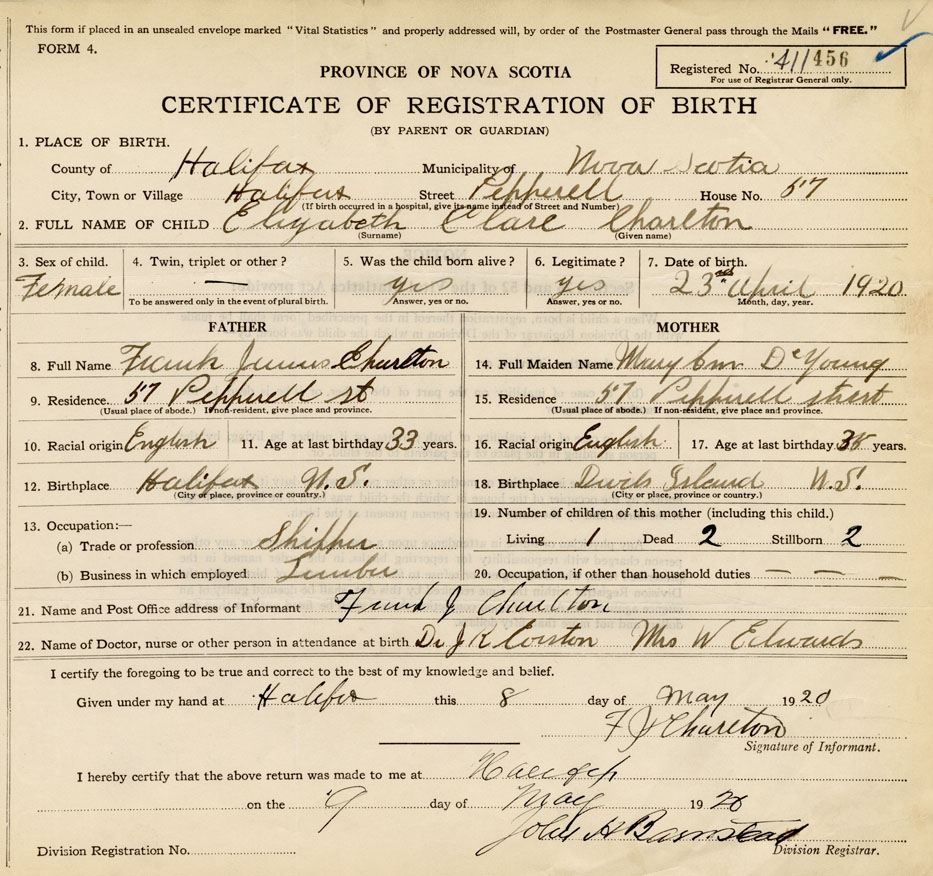 This form if placed in an unsealed envelope marked "Vital Statistics" and properly addressed will, by order of the Postmaster General pass through the Mails "FREE."
FORM 4.
Registered No. 411 456
For use of Registrar General only.
PROVINCE OF NOVA SCOTIA
CERTIFICATE OF REGISTRATION OF BIRTH
(BY PARENT OR GUARDIAN)
1. PLACE OF BIRTH.
County of Halifax Municipality of Nova Scotia
City, Town or Village Halifax Street Pepperell House No. 57
(If birth occurred in a hospital, give its name instead of Street and Number)
2. FULL NAME OF CHILD Elizabeth Clare Charlton
(Surname) (Given name)
3. Sex of child. 4. Twin, triplet or other? 5. Was the child born alive? 6. Legitimate? 7. Date of birth.
Female — yes yes 23rd April 1920
To be answered only in the event of plural birth. Answer, yes or no. Answer, yes or no. Month, day, year.
FATHER
8. Full Name Frank Charlton
9. Residence. 57 Pepperell st
(Usual place of abode.) If non-resident, give place and province.
10. Racial origin English 11. Age at last birthday 33 years.
12. Birthplace Halifax N.S.
(City or place, province or country.)
13. Occupation:—
(a) Trade or profession Shipper
(b) Business in which employed Lumber
MOTHER
14. Full Maiden Name Mary Ann DeYoung
15. Residence 57 Pepperell street
(Usual place of abode.) If non-resident, give place and province.
16. Racial origin English 17. Age at last birthday years.
18. Birthplace Island N.S.
(City or place, province or country.)
19. Number of children of this mother (including this child.)
Living 1 Dead 2 Stillborn 2
20. Occupation, if other than household duties — — —
21. Name and Post Office address of Informant Frank J Charlton
22. Name of Doctor, nurse or other person in attendance at birth Dr J K Mrs W Edwards
I certify the foregoing to be true and correct to the best of my knowledge and belief.
Given under my hand at Halifax this 8 day of May 1920
F J Charlton
Signature of Informant.
I hereby certify that the above return was made to me at Halifax
on the 9 day of May 1920
John A Barnstead
Division Registration No. Division Registrar.